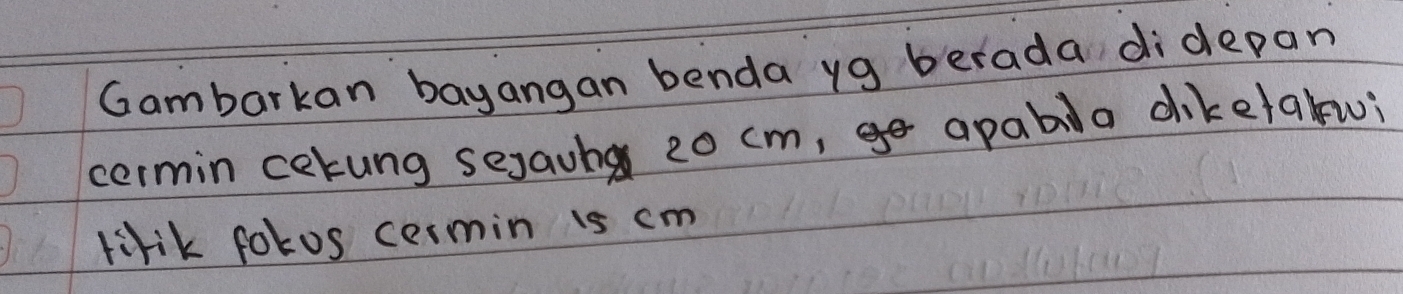 Gambarkan bayangan benda yg berada didepan
cermin cekung sejauh 20 cm, apabila diketahui
titik fokus cermin 15 cm